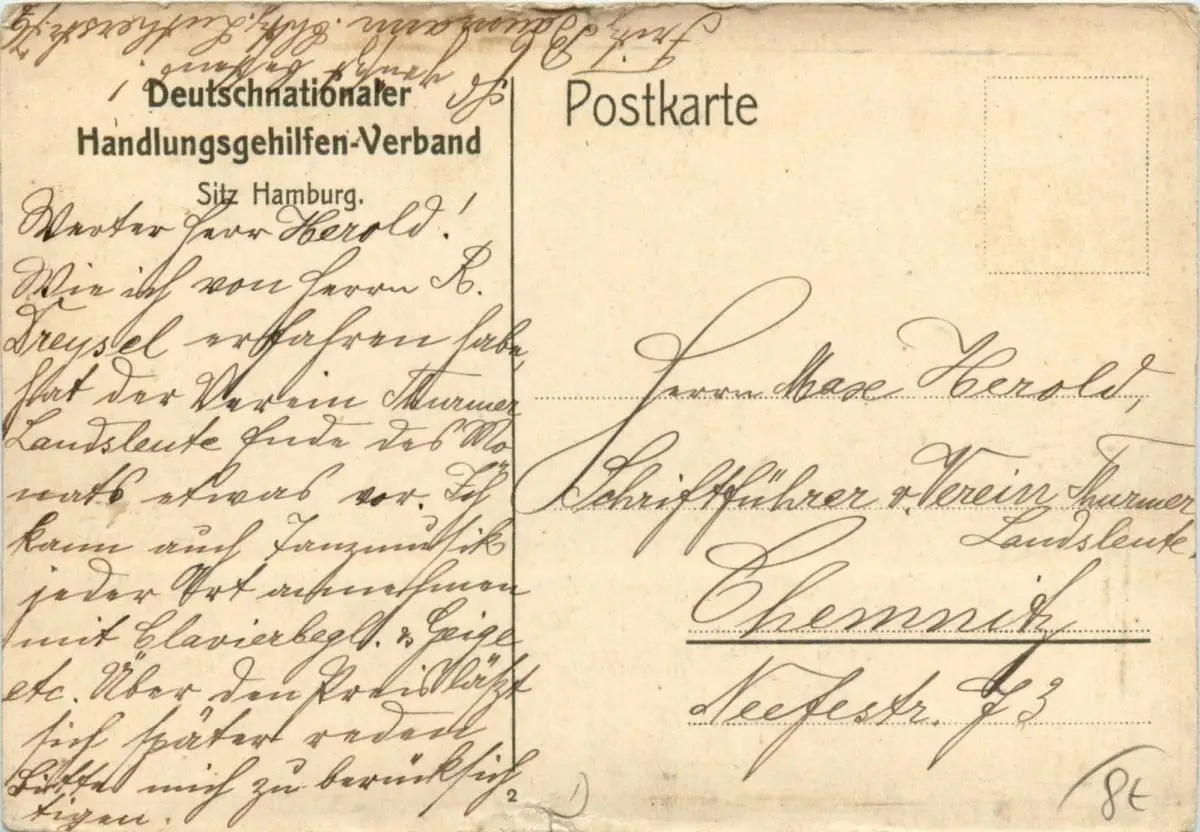 Deutschnationaler
Handlungsgehilfen-Verband
Sitz Hamburg.
Werter Herr Herold!
Wie ich von Herrn R.
Dreysel erfahren habe,
hat der Verein Thurmer
Landsleute Ende des Mo
nats etwas vor. Ich
kann auch Tanzmusik
jeder Art annehmen
mit Clavierbegl. & Geige
etc. Über den Preis läßt
sich später reden
Bitte mich zu berücksich
tigen.
Fritz Baumann. Chtz. Lutherstr.
Postkarte
Herrn Max Herold,
Schriftführer v. Verein Thurmer
Landsleute,
Chemnitz
Neefestr. 73
2
8t